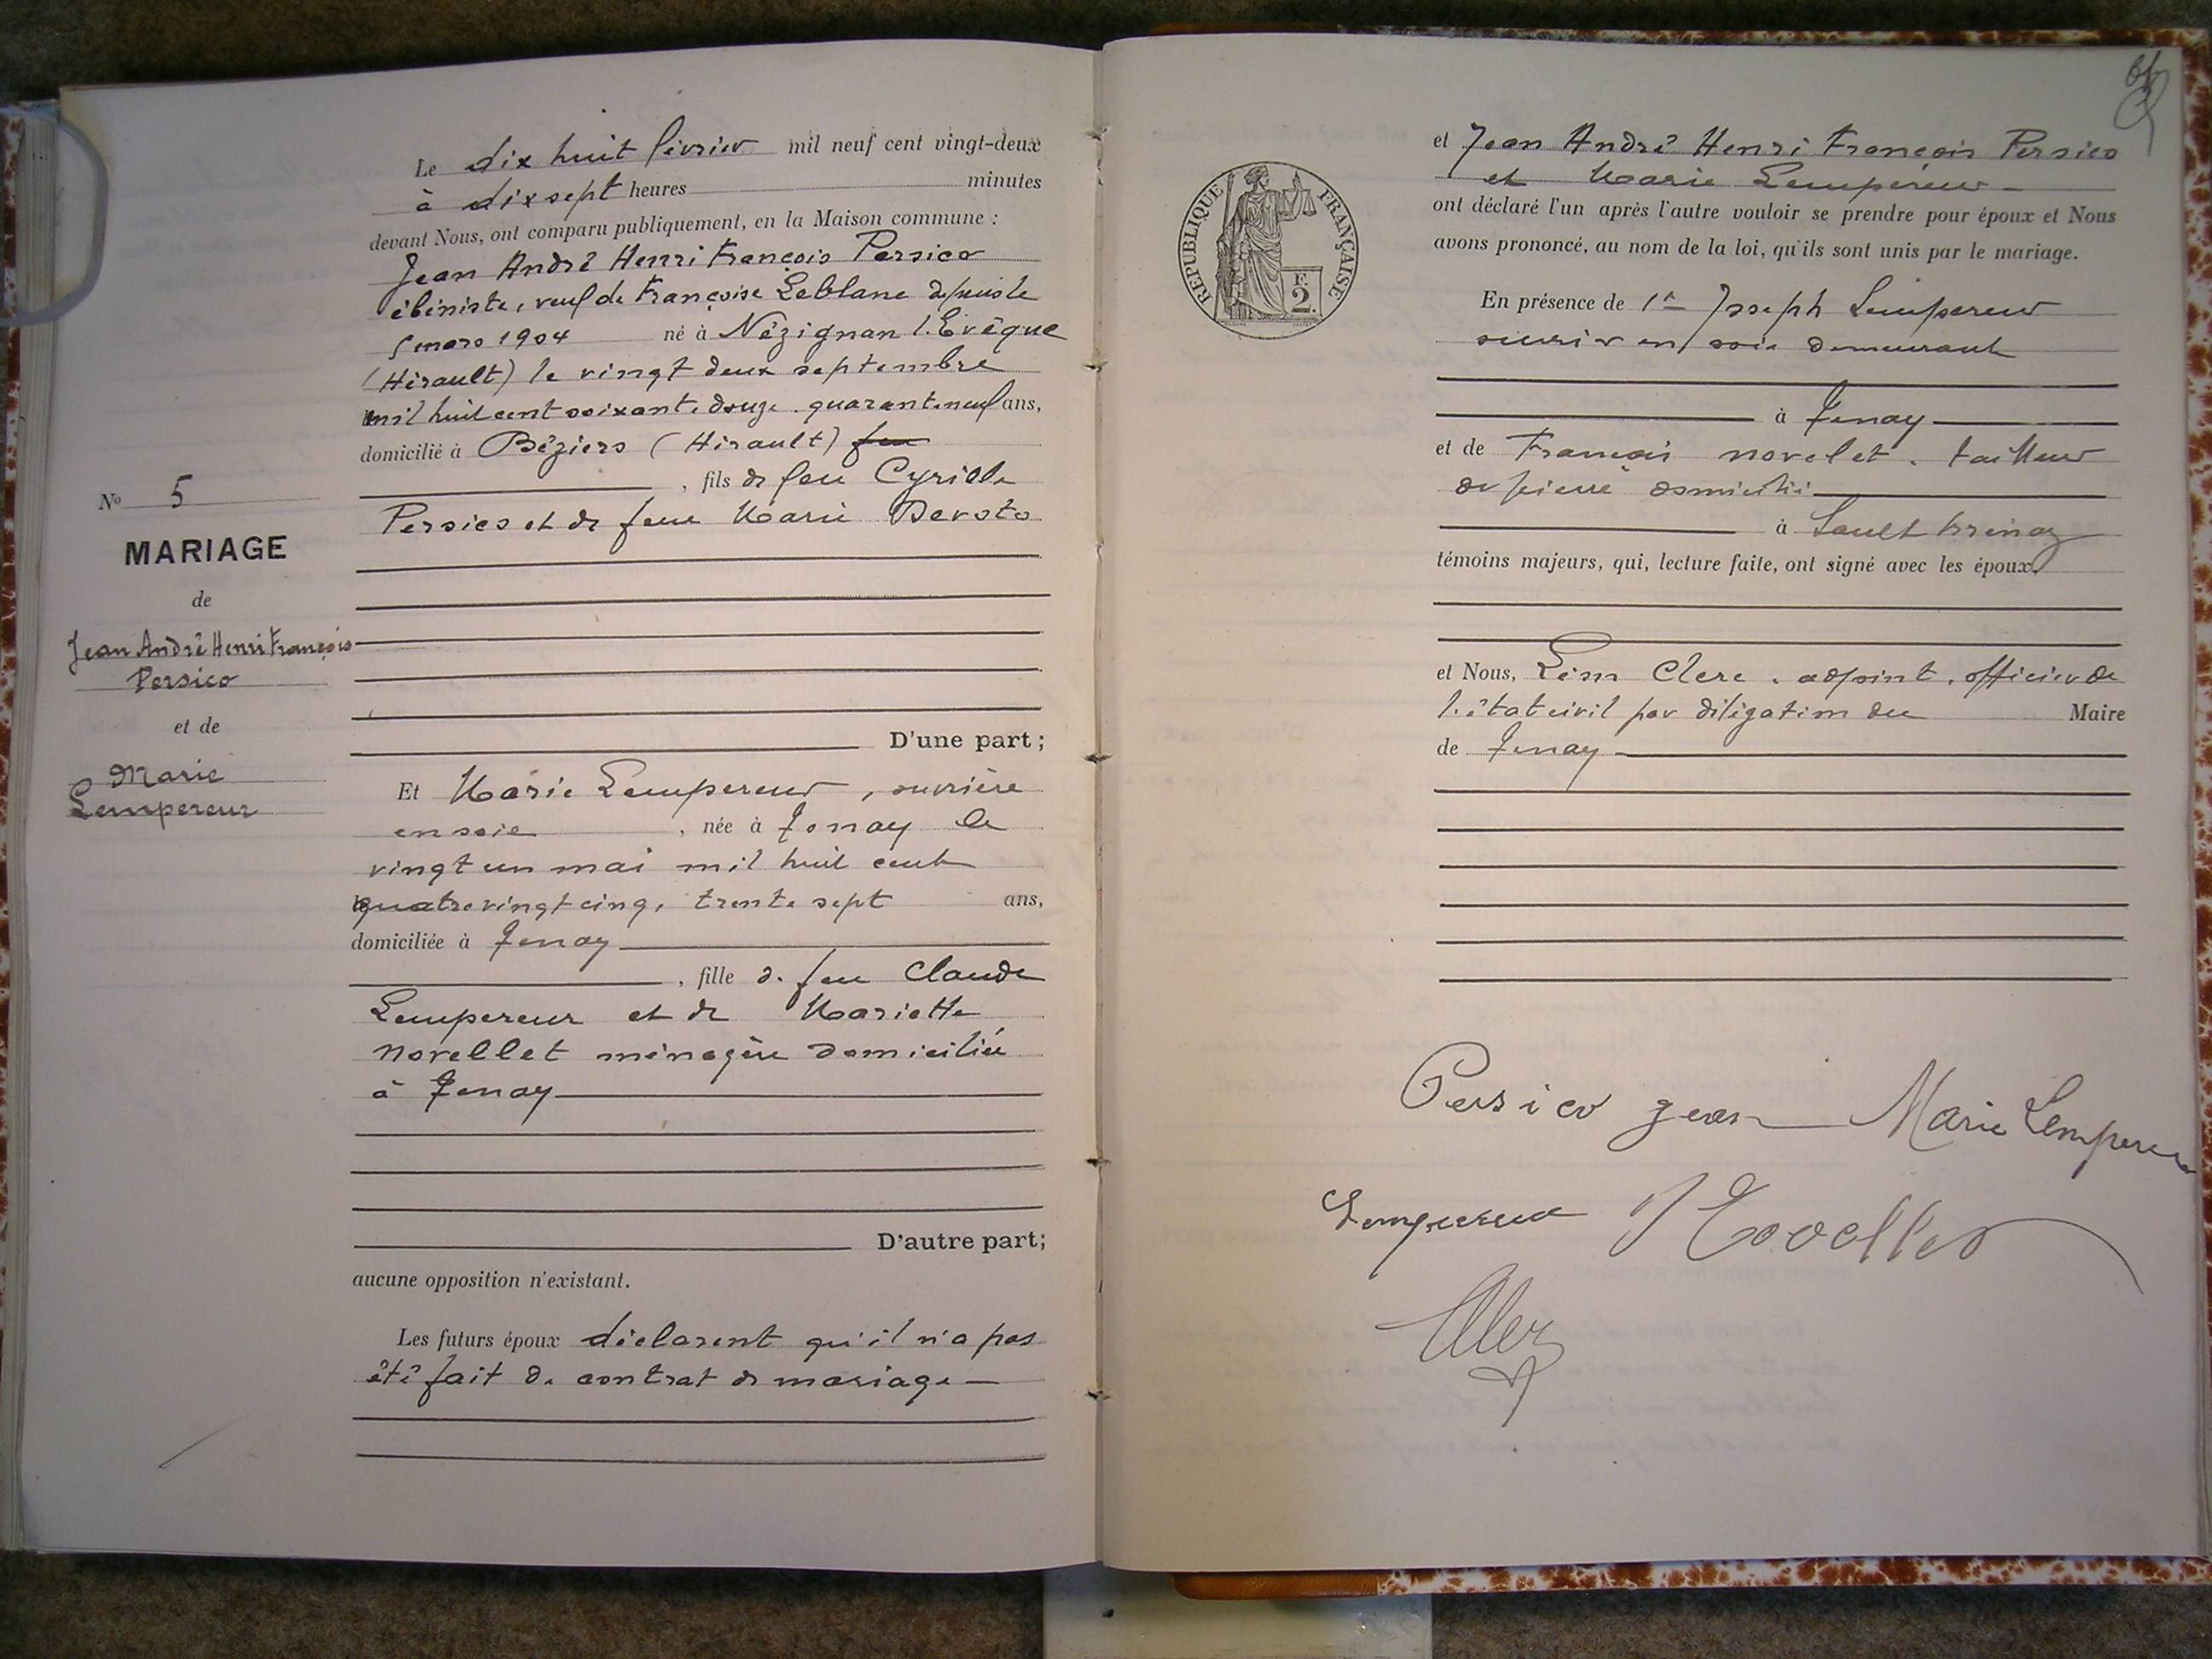 Le dix huit février mil neuf cent vingt-deux
à dix sept heures minutes
devant Nous, ont comparu publiquement, en la Maison commune :
Jean André Henri François Persico
ébéniste, veuf de Françoise Leblanc depuis le
5 mars 1904 né à Nézignan l'Evêque
(Hérault) le vingt deux septembre
mil huit cent soixante douze. quarante neuf ans,
domicilié à Béziers (Hérault) feu
, fils de feu Cyrille
Persico et de feue Marie Devoto
D'une part ;
No 5
MARIAGE
de
Jean André Henri François
Persico
et de
Marie
Lempereur
Et Marie Lempereur, ouvrière
en soie, née à Tenay le
vingt un mai mil huit cent
quatre vingt cinq, trente sept ans,
domiciliée à Tenay
, fille de feu Claude
Lempereur et de Mariette
Novellet ménagère domiciliée
à Tenay
D'autre part;
aucune opposition n'existant.
Les futurs époux déclarent qu'il n'a pas
été fait de contrat de mariage
RÉPUBLIQUE FRANÇAISE
F.
2.
et Jean André Henri François Persico
et Marie Lempereur
ont déclaré l'un après l'autre vouloir se prendre pour époux et Nous
avons prononcé, au nom de la loi, qu'ils sont unis par le mariage.
En présence de 1° Joseph Lempereur
ouvrier en soie demeurant
à Tenay
et de François Novelet. tailleur
de pierre domicilié
à Sault Brenaz
témoins majeurs, qui, lecture faite, ont signé avec les époux.
et Nous, Léon Clerc. adjoint. officier de
l'état civil par délégation du Maire
de Tenay
Persico Jean Marie Lempereur
Lempereur Novellet